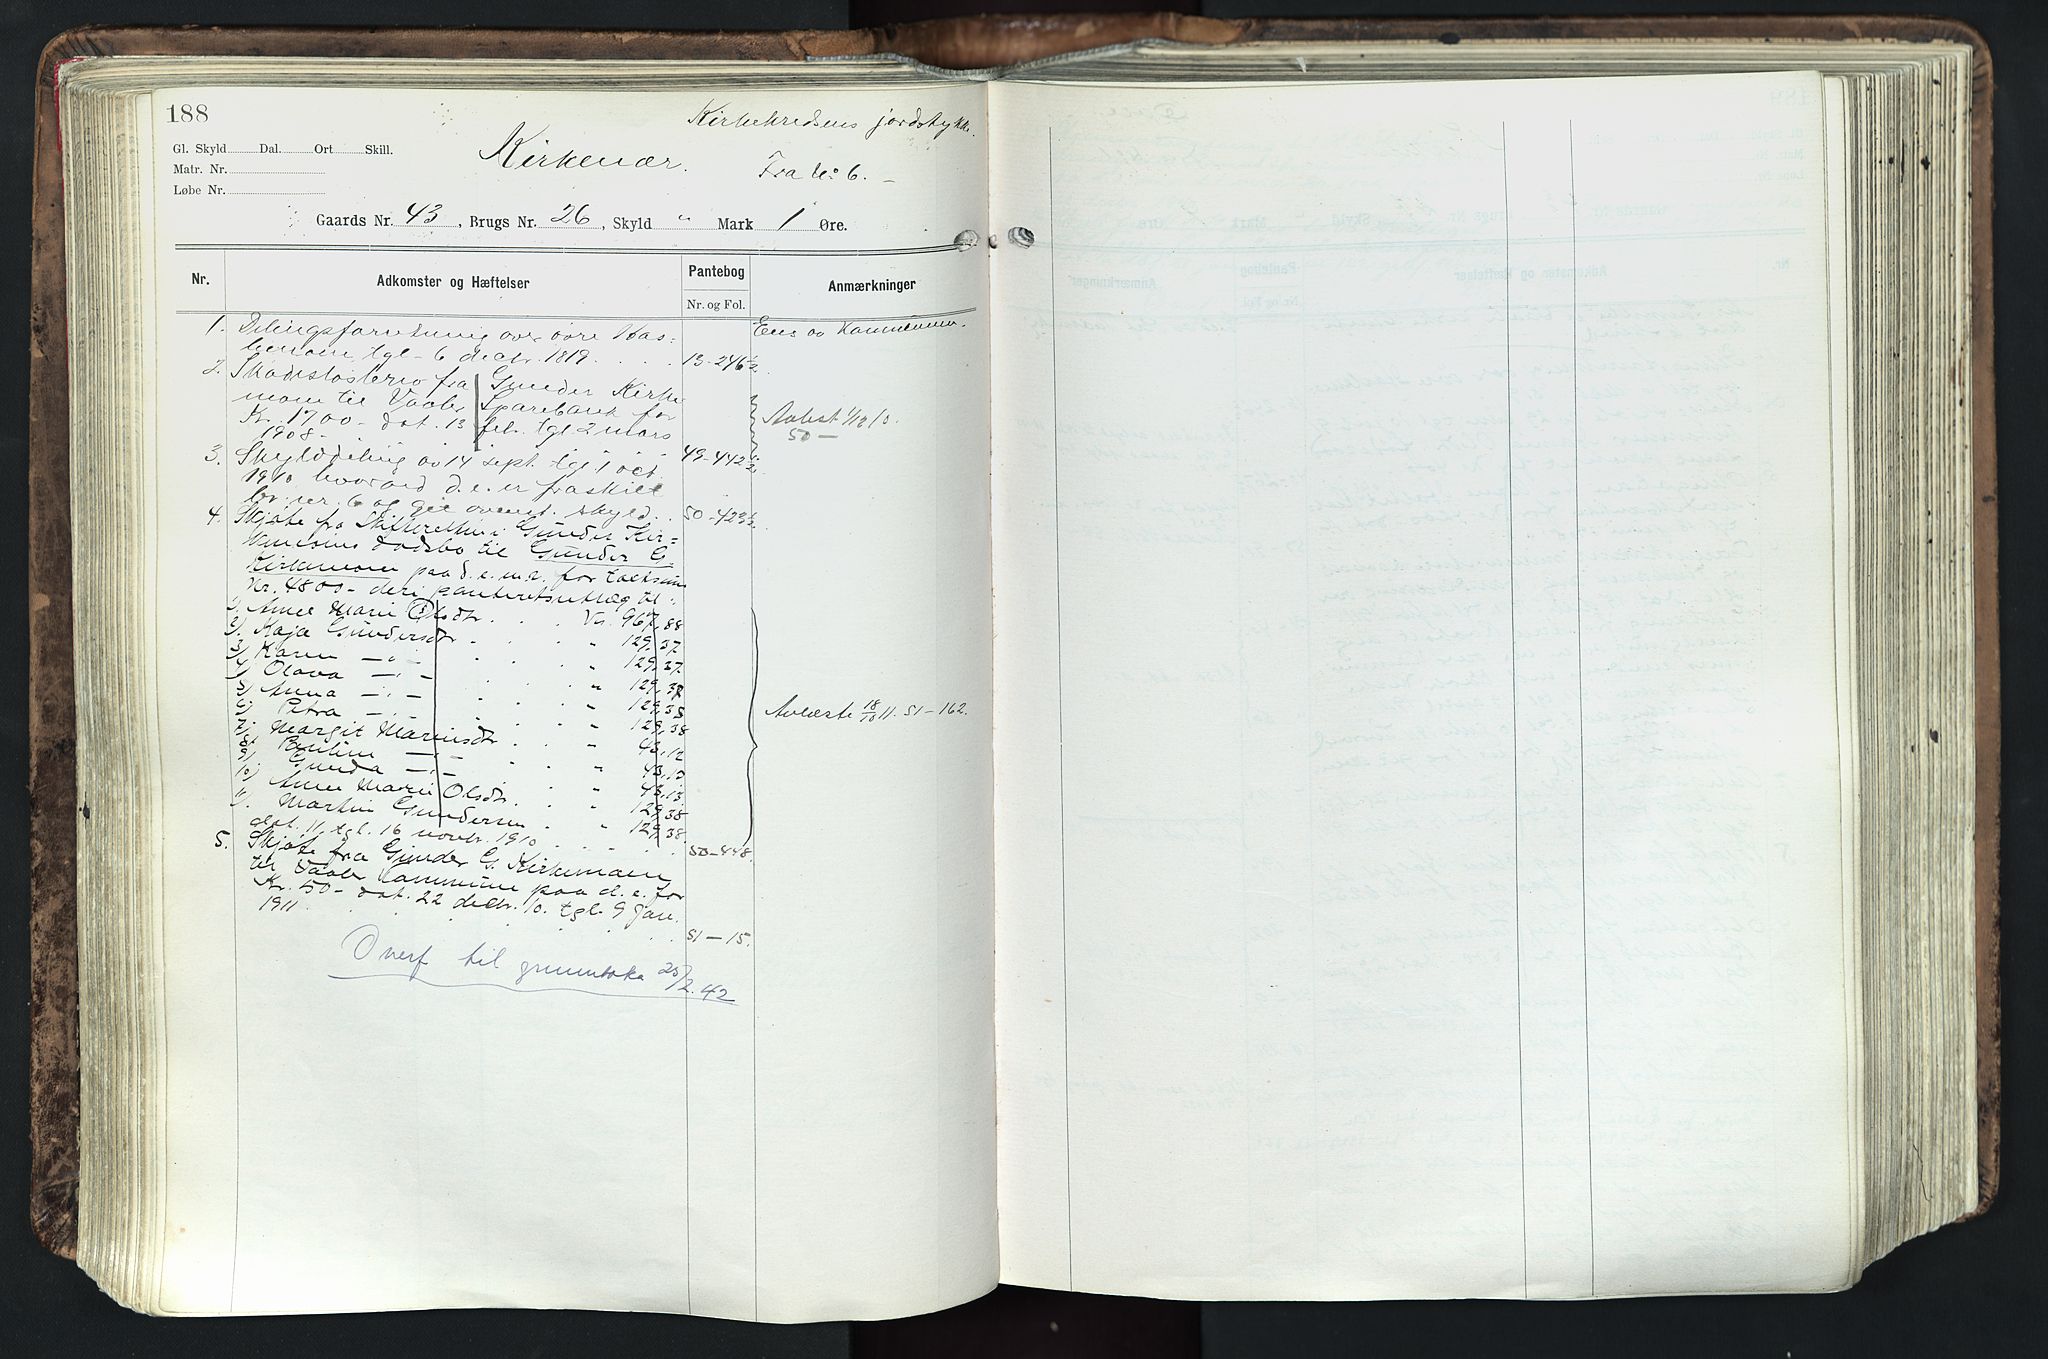 188
Kirkekredsens jordstykke.
Gl. Skyld Dal. Ort Skill.
Matr. Nr.
Løbe Nr.
Kirkenær.
Fra No 6. —
Gaards Nr. 43, Brugs Nr. 26, Skyld " Mark 1 Øre.
Nr. Adkomster og Hæftelser Pantebog Anmærkninger
Nr. og Fol.
1. Delingsforretning over øvre
tgl. 6 decbr. 1819. . . . 13-246½
Eies av Kommunen.
2. Skadesløsbrev fra Gunder Kirke
moen til Vaaler Sparebank for
Kr. 1700 - dat. 13 feb. tgl. 2 mars
1908 - 49-442½
Avlæst 1/12 10.
50 —
3. Skylddeling av 14 sept. tgl. 1 oct.
1910, hvorved d. e. er fraskilt
br. nr. 6 og git ovenst. skyld. . 50-423½
4. Skjøte fra Skifteretten i Gunder Kir-
kemoens dødsbo til Gunder G.
Kirkemoen paa d. e. m. v. for
Kr. 4800 - deri panteretsutlæg til:
1) Anne Marie Olsdtr. . . . Kr. 967,88
2) Kaja Gundersdtr. . . . " 129,37
3) Karen — " — . . . " 129,37
4) Olava — " — . . . " 129,37
5) Anna — " — . . . " 129,38
6) Petra — " — . . . " 129,38
7) Margit Mariusdtr . . " 43,12
8) — " — . . " 43,12
9) Gunda — " — . . " 43,13
10) Anne Marie Olsdtr. . . " 129,38
11) Martin Gundersen . . " 129,38
dat. 11, tgl. 16 novbr. 1910. . . . 50-448.
Avlæste 18/10 11. 51-162.
5. Skjøte fra Gunder G. Kirkemoen
til Vaaler Kommune paa d. e. for
Kr. 50 - dat. 22 decbr. 10. tgl. 9 jan.
1911 . . . . . 51-15.
Overf til grunnboka 25/2. 42